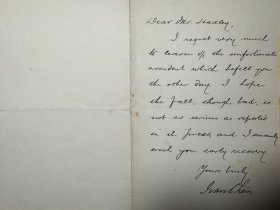 Dear Mr Hadley,
I regret very much
to learn of the unfortunate
accident which befell you
the other day. I hope
the fall, though bad, is
not so serious as reported
in the press, and I sincerely
wish you early recovery.
Yours truly,